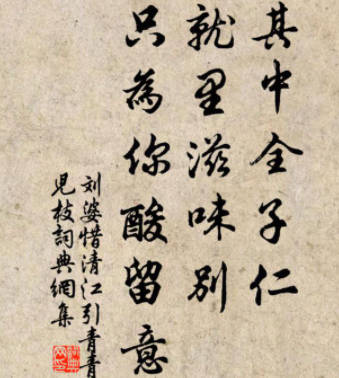 其中全子仁
就里滋味别
只為你酸留意
刘婆惜清江引青青
見枝詞典網集